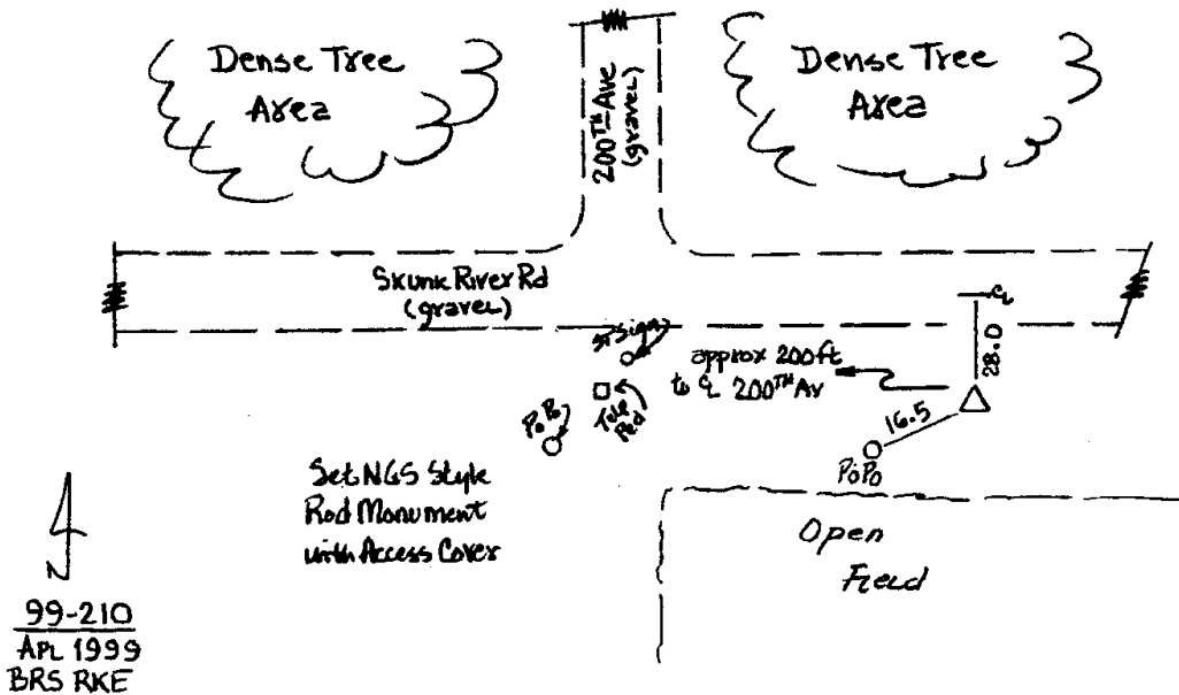 Dense Tree
Area
200TH Ave
(gravel)
Dense Tree
Area
Skunk River Rd
(gravel)
ST Sign
approx 200ft
to ℄ 200TH Av
℄
28.0
16.5
PoPo
Tele
Ped
PoPo
Set NGS Style
Rod Monument
with Access Cover
Open
Field
N
99-210
APR 1999
BRS RKE